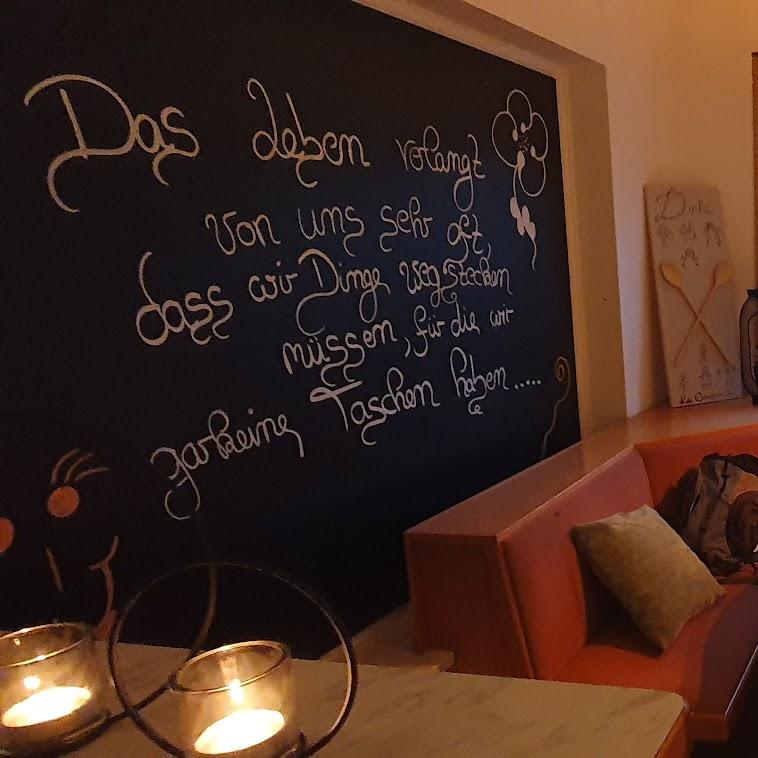 Das Leben verlangt
von uns sehr oft,
dass wir Dinge wegstecken
müssen, für die wir
garkeine Taschen haben.....
Danke